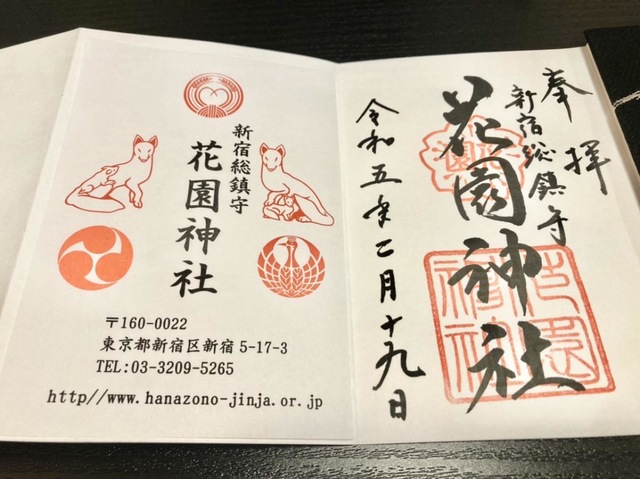 新宿総鎮守
花園神社
〒160-0022
東京都新宿区新宿5-17-3
TEL:03-3209-5265
http//www.hanazono-jinja.or.jp
奉拝
新宿総鎮守
花園神社
令和五年二月十九日